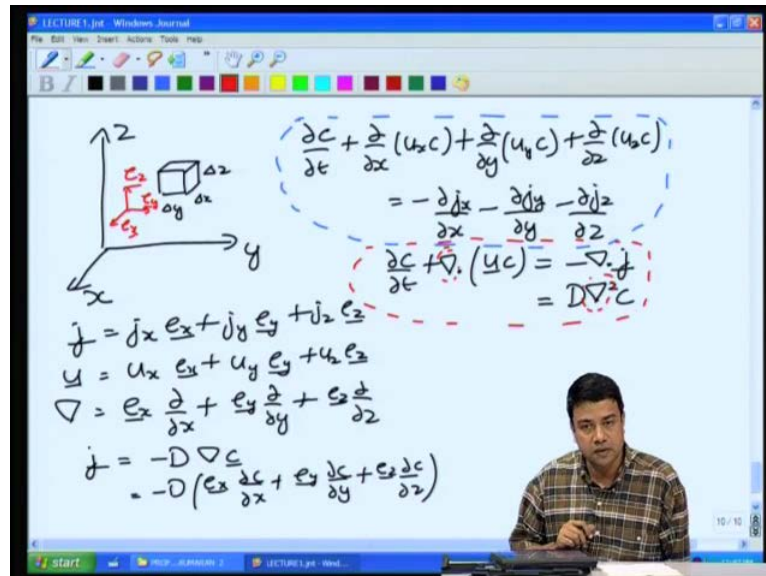 LECTURE1.jnt - Windows Journal
File Edit View Insert Actions Tools Help
B I
z
e_z
e_y
e_x
Δz
Δx
Δy
y
x
∂c/∂t + ∂/∂x (u_x c) + ∂/∂y (u_y c) + ∂/∂z (u_z c)
= -∂j_x/∂x - ∂j_y/∂y - ∂j_z/∂z
∂c/∂t + ∇. (u c) = -∇. j
= D∇²c
j = j_x e_x + j_y e_y + j_z e_z
u = u_x e_x + u_y e_y + u_z e_z
∇ = e_x ∂/∂x + e_y ∂/∂y + e_z ∂/∂z
j = -D ∇ c
= -D (e_x ∂c/∂x + e_y ∂c/∂y + e_z ∂c/∂z)
10 / 10
start
LECTURE1.jnt - Wind...